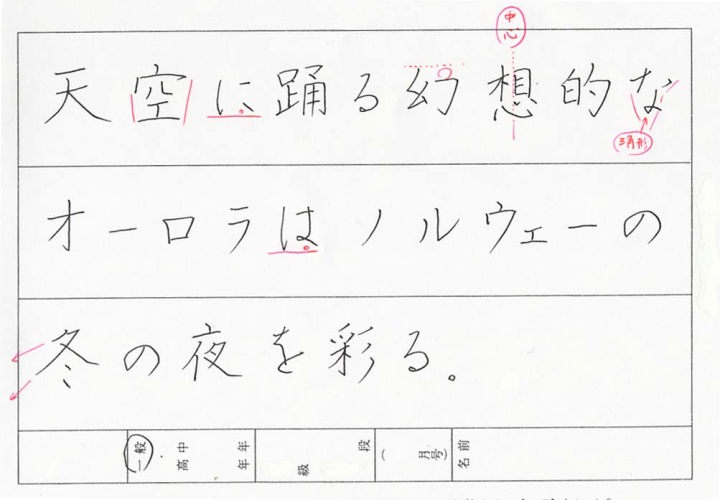 中心
天空に踊る幻想的な
三角形
オーロラはノルウェーの
冬の夜を彩る。
一般 高中 年年 級 段 ( 月号) 名前